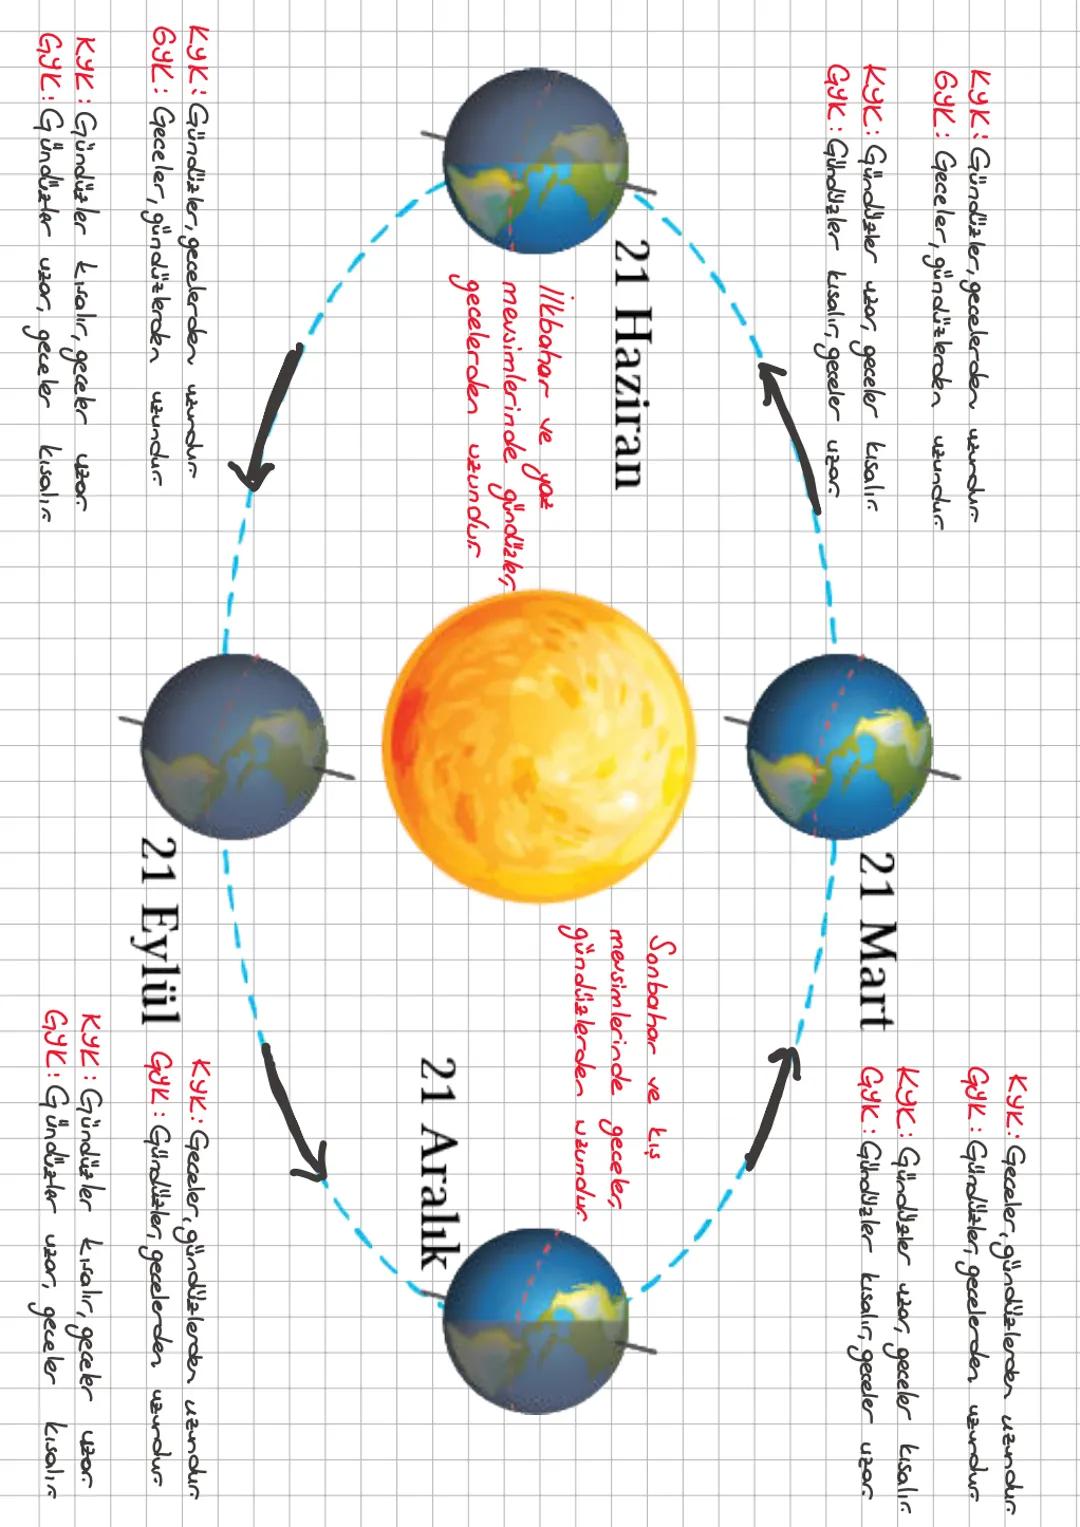 KYK: Geceler, gündüzlerden uzundur.
GYK: Gündüzler, gecelerden uzundur.
KYK: Gündüzler uzar, geceler kısalır.
GYK: Gündüzler kısalır, geceler uzar.
KYK: Gündüzler, gecelerden uzundur.
GYK: Geceler, gündüzlerden uzundur.
KYK: Gündüzler uzar, geceler kısalır.
GYK: Gündüzler kısalır, geceler uzar.
21 Mart
21 Haziran
İlkbahar ve yaz
mevsimlerinde gündüzler,
gecelerden uzundur.
Sonbahar ve kış
mevsimlerinde geceler,
gündüzlerden uzundur.
21 Aralık
21 Eylül
KYK: Gündüzler, gecelerden uzundur.
GYK: Geceler, gündüzlerden uzundur.
KYK: Gündüzler kısalır, geceler uzar.
GYK: Gündüzlar uzar, geceler kısalır.
KYK: Geceler, gündüzlerden uzundur.
GYK: Gündüzler, gecelerden uzundur.
KYK: Gündüzler kısalır, geceler uzar.
GYK: Gündüzlar uzar, geceler kısalır.